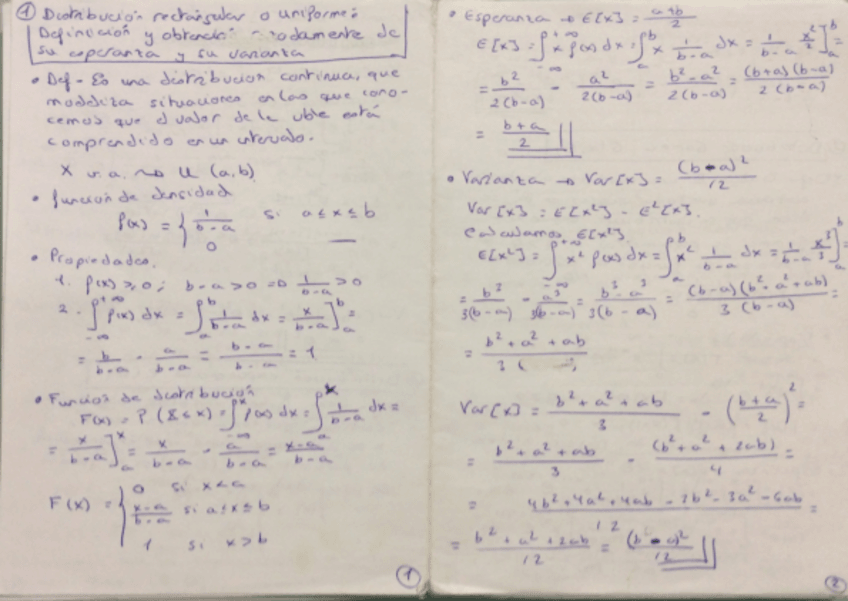 ① Distribución rectangular o uniforme:
Definición y obtención razonadamente de
su esperanza y su varianza
• Def - Es una distribución continua, que
modeliza situaciones en las que cono-
cemos que el valor de la vble está
comprendido en un intervalo.
X v.a. ~> U (a,b)
• función de densidad
f(x) = { 1/(b-a) si a ≤ x ≤ b
0 —
• Propiedades.
1. f(x) ≥ 0; b-a > 0 => 1/(b-a) > 0
2. ∫_{-∞}^{+∞} f(x) dx = ∫_a^b 1/(b-a) dx = x/(b-a) ]_a^b =
= b/(b-a) - a/(b-a) = (b-a)/(b-a) = 1
• Función de distribución
F(x) = P (X ≤ x) = ∫_{-∞}^x f(x) dx = ∫_a^x 1/(b-a) dx =
= x/(b-a) ]_a^x = x/(b-a) - a/(b-a) = (x-a)/(b-a)
F(x) = { 0 si x < a
(x-a)/(b-a) si a ≤ x ≤ b
1 si x > b
1
• Esperanza → E[x] = (a+b)/2
E[x] = ∫_{-∞}^{+∞} x f(x) dx = ∫_a^b x 1/(b-a) dx = 1/(b-a) x²/2 ]_a^b =
= b²/2(b-a) - a²/2(b-a) = (b²-a²)/2(b-a) = (b+a)(b-a)/2(b-a)
= (b+a)/2
• Varianza → Var[x] = (b-a)²/12
Var[x] = E[x²] - E²[x].
Calculamos E[x²]
E[x²] = ∫_{-∞}^{+∞} x² f(x) dx = ∫_a^b x² 1/(b-a) dx = 1/(b-a) x³/3 ]_a^b
= b³/3(b-a) - a³/3(b-a) = (b³-a³)/3(b-a) = (b-a)(b²+a²+ab)/3(b-a) =
= (b²+a²+ab)/3
Var[x] = (b²+a²+ab)/3 - ((b+a)/2)² =
= (b²+a²+ab)/3 - (b²+a²+2ab)/4 =
= (4b²+4a²+4ab-3b²-3a²-6ab)/12 =
= (b²+a²+2ab)/12 = (b-a)²/12
2